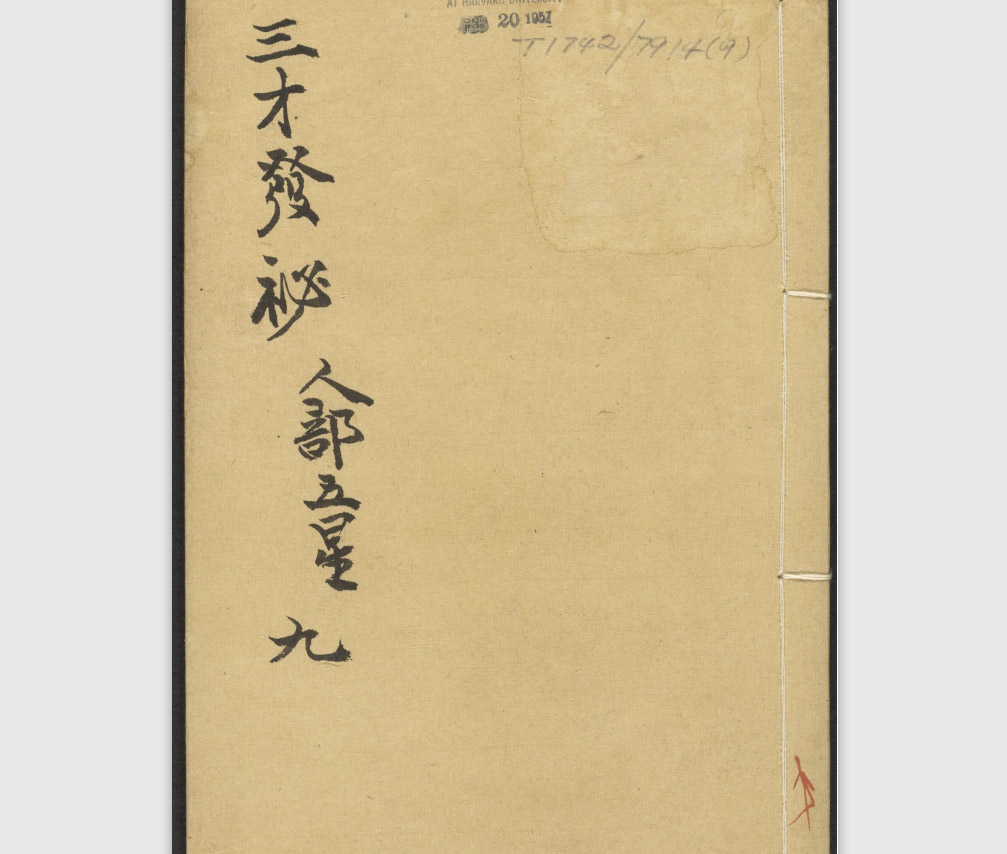 AT HARVARD UNIVERSITY
FEB 20 1957
T1742/7914(9)
三才發祕
人部五星
九